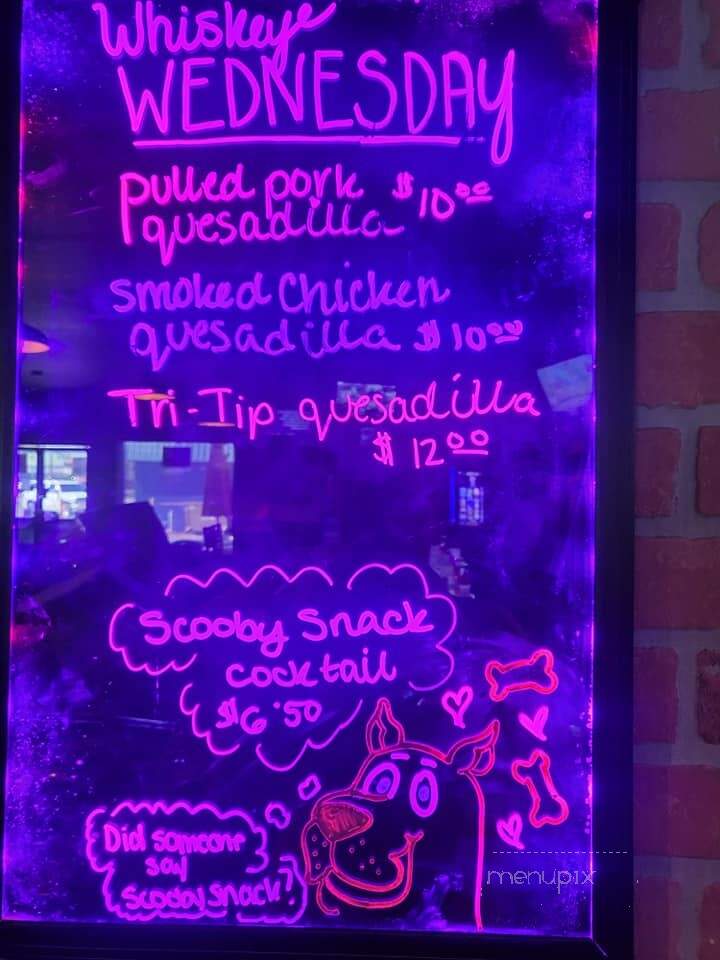 Whiskeye
WEDNESDAY
pulled pork $10.00
quesadilla
smoked chicken
quesadilla $10.00
Tri-Tip quesadilla
$12.00
Scooby Snack
cocktail
$6.50
Did someone
say
scooby snack?
menupix